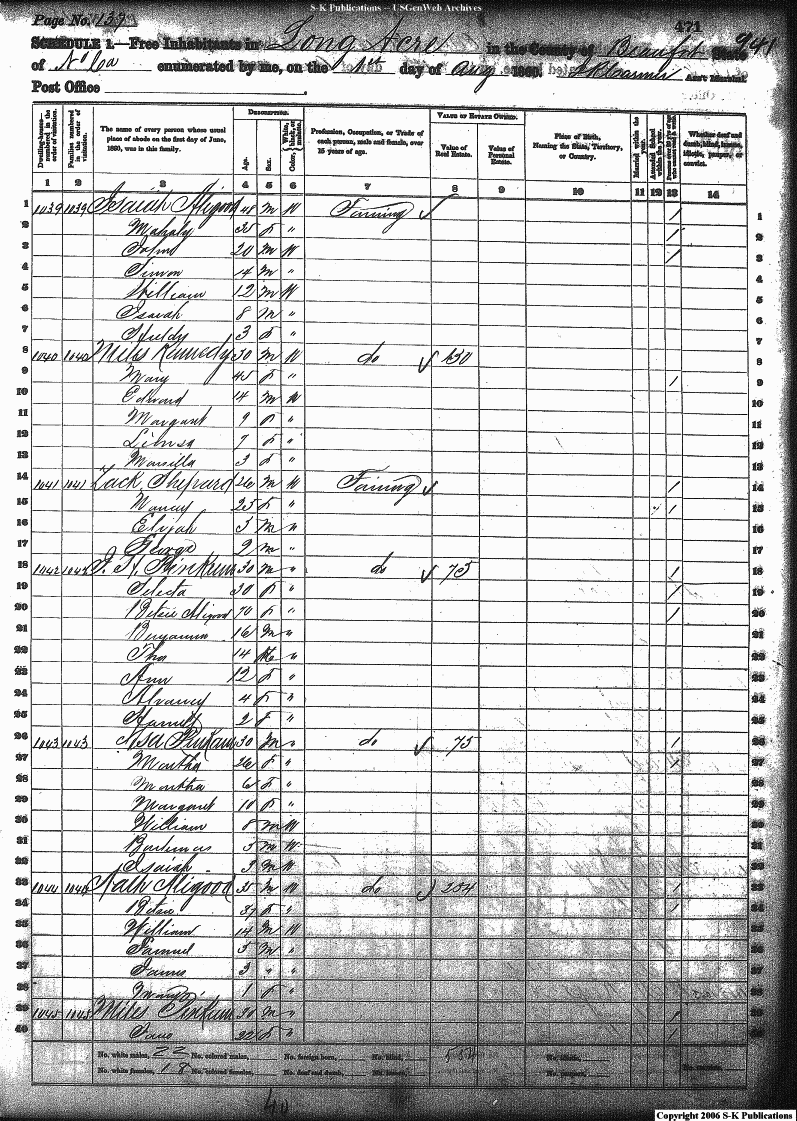 S-K Publications – USGenWeb Archives
Page No. 137
471
941
SCHEDULE 1.—Free Inhabitants in Long Acre in the County of Beaufort State
of No Ca enumerated by me, on the 1st day of Aug 1860. Ass't Marshal
Post Office
Dwelling-houses— numbered in the order of visitation.
Families numbered in the order of visitation.
The name of every person whose usual place of abode on the first day of June, 1860, was in this family.
DESCRIPTION.
Age.
Sex.
Color, White, black, or mulatto.
Profession, Occupation, or Trade of each person, male and female, over 15 years of age.
VALUE OF ESTATE OWNED.
Value of Real Estate.
Value of Personal Estate.
Place of Birth, Naming the State, Territory, or Country.
Married within the year.
Attended School within the year.
Persons over 20 y'rs of age who cannot read & write.
Whether deaf and dumb, blind, insane, idiotic, pauper, or convict.
1 2 3 4 5 6 7 8 9 10 11 12 13 14
1 1039 1039 Isaiah Aligood 48 M W Farming / 1
2 Mahaly 35 F " / 2
3 John 20 M W / 3
4 Simon 14 M " 4
5 William 12 M W 5
6 Isaiah 8 M " 6
7 Huldy 3 F " 7
8 1040 1040 Miles Kennedy 30 M W do 8
9 Mary 45 F " / 9
10 Edward 14 M W 10
11 Margaret 9 F " 11
12 7 F " 12
13 Marsilla 3 F " 13
14 1041 1041 Zack Shepard 26 M W Farming / 14
15 Nancy 25 F " / 15
16 Elijah 3 M " 16
17 George 2 M " 17
18 1042 1042 30 M " do 75 / 18
19 Selecta 30 F " / 19
20 Betsie Aligood 70 F " / 20
21 Benjamin 16 M " 21
22 Tho 14 M " 22
23 Ann 12 F " 23
24 Alvaney 4 F " 24
25 2 F " 25
26 1043 1043 Asa Pinkam 30 M " do 75 / 26
27 Martha 26 F " / 27
28 Martha 6 F " 28
29 Margaret 10 F " 29
30 William 8 M W 30
31 5 M W 31
32 Isaiah 3 M W 32
33 1044 1044 Nath Aligood 35 M W do 234 / 33
34 Betsie 37 F " / 34
35 William 14 M W 35
36 Samuel 5 M " 36
37 James 3 " " 37
38 Mary 1 F " 38
39 1045 1045 Miles Pinkum 30 M " / 39
40 Jane 22 F " / 40
No. white males, 22 No. colored males, No. foreign born, No. blind, 534 No. idiotic,
No. white females, 18 No. colored females, No. deaf and dumb, No. insane, No. paupers, No. convicts,
40
Copyright 2006 S-K Publications